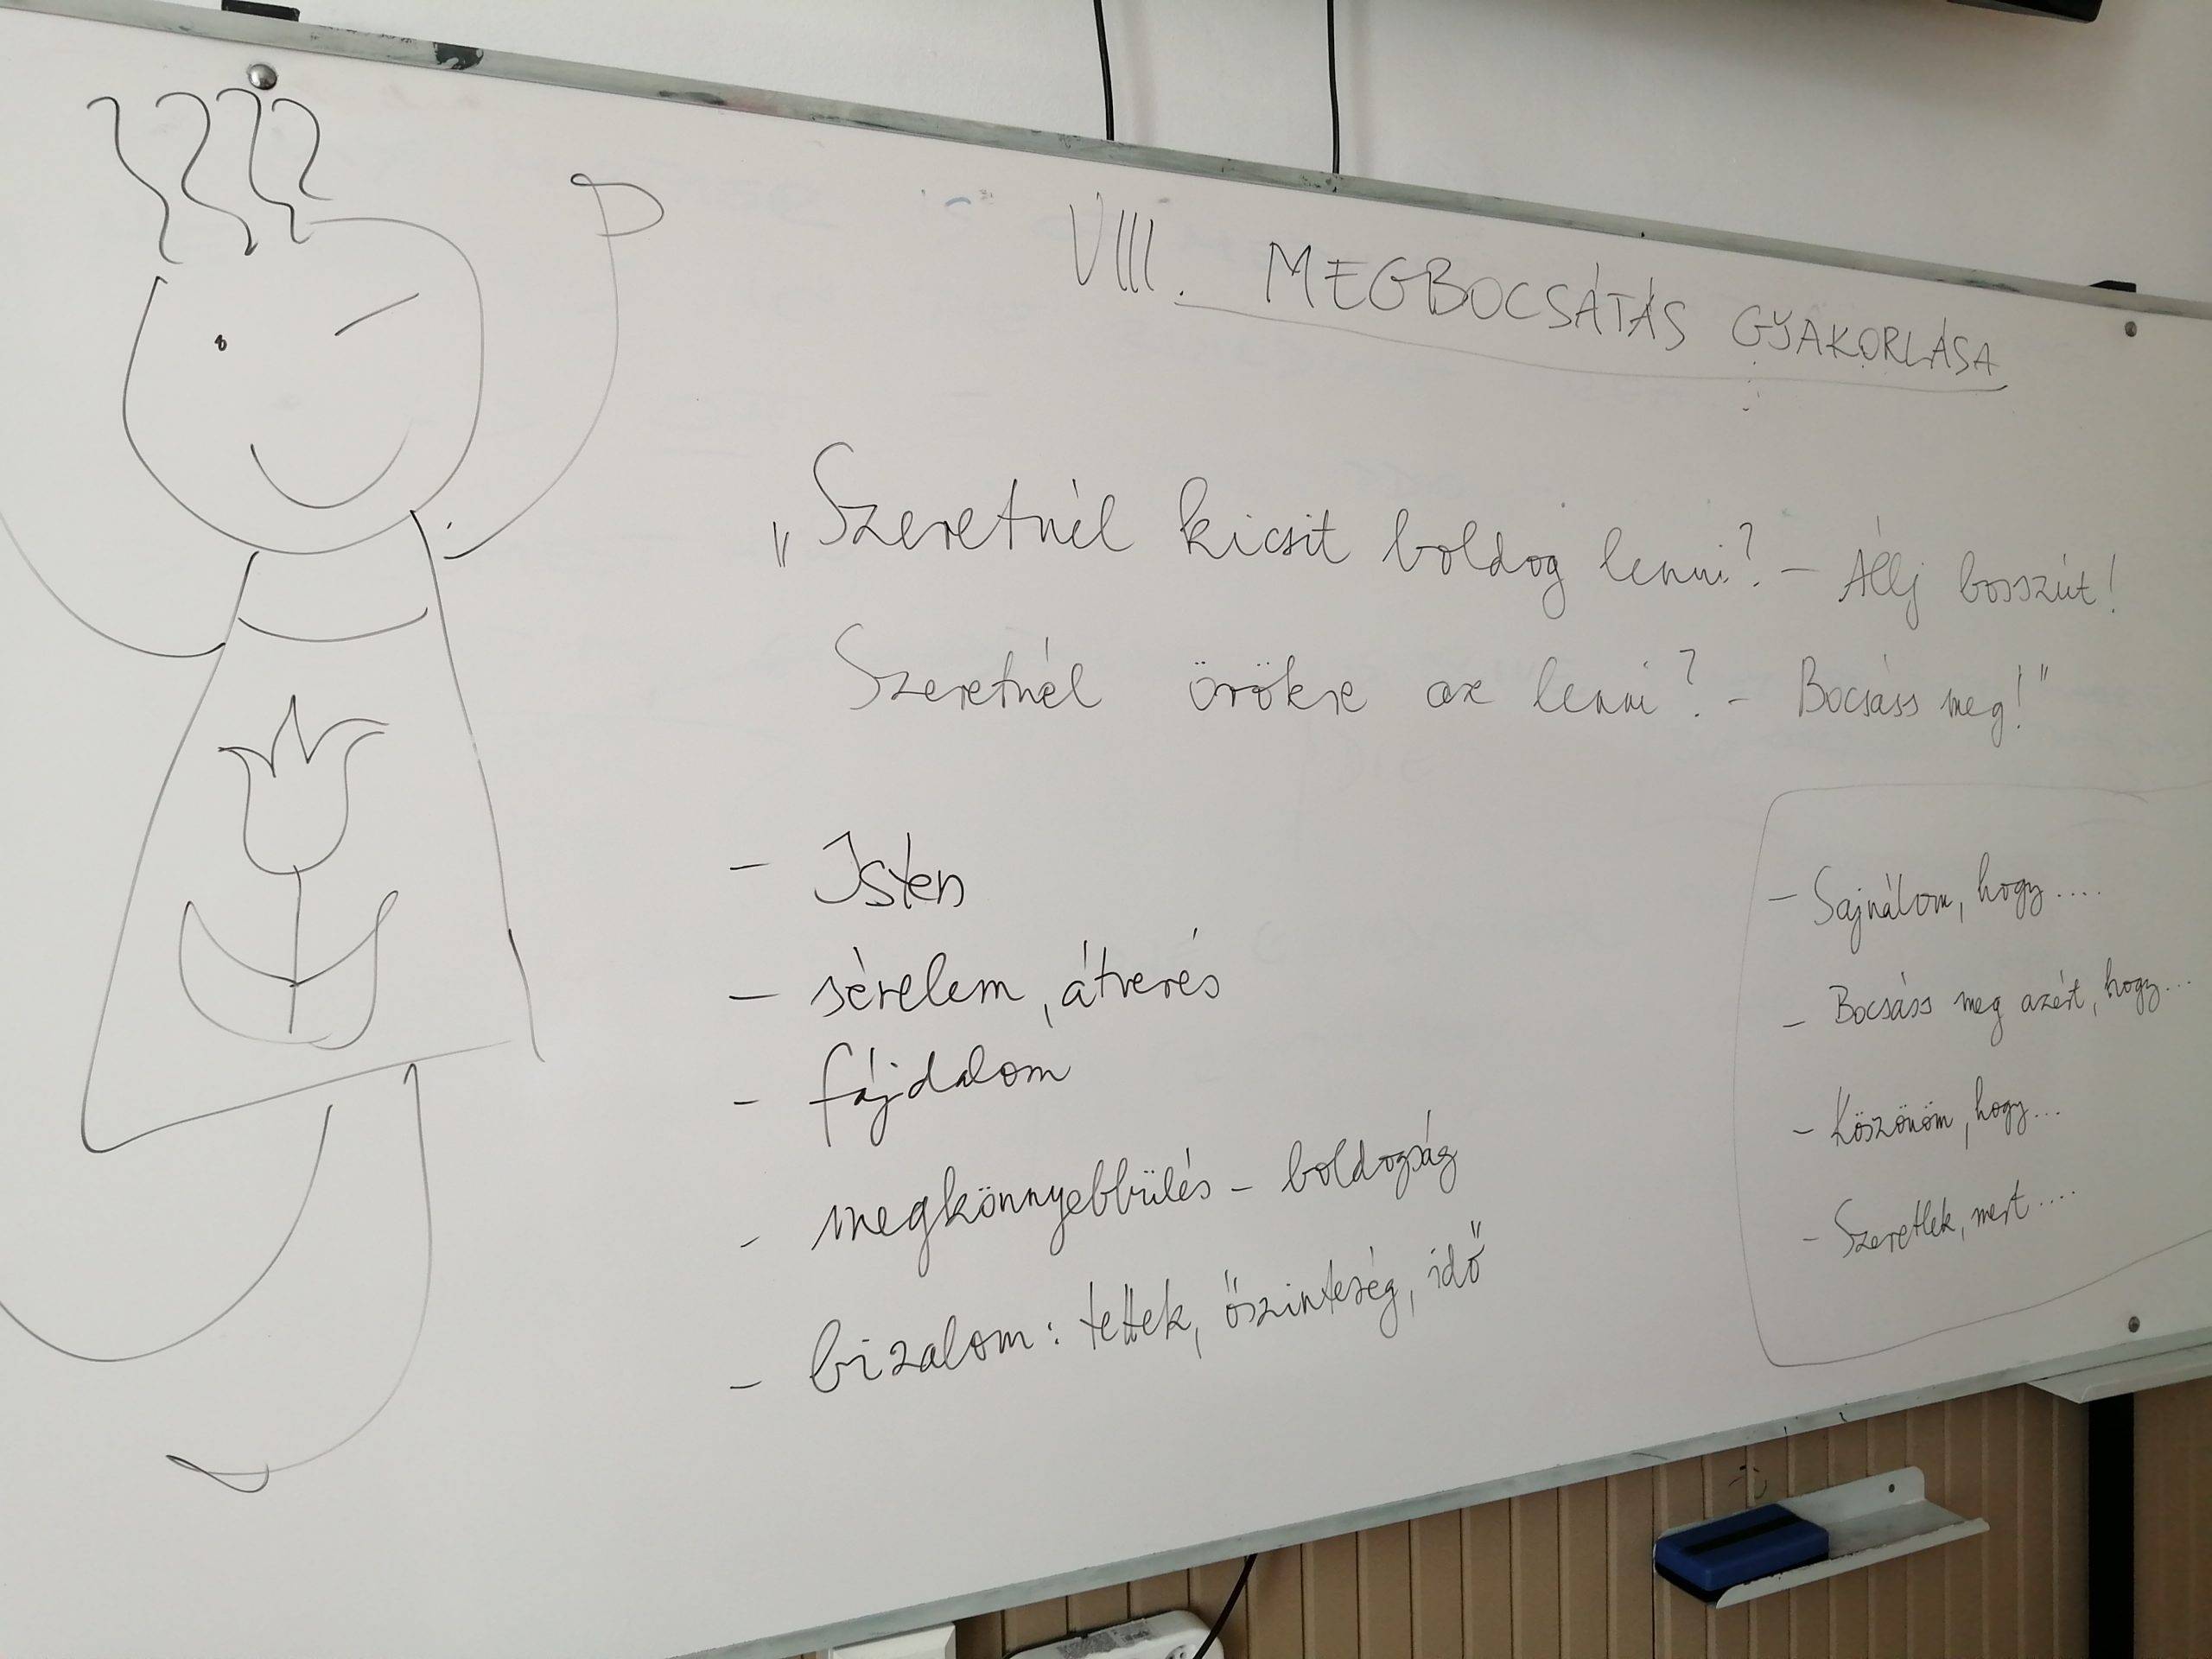 VIII. MEGBOCSÁTÁS GYAKORLÁSA
„Szeretnél kicsit boldog lenni? – Állj bosszút!
Szeretnél örökre az lenni? – Bocsáss meg!"
– Isten
– sérelem, átverés
– fájdalom
– megkönnyebbülés – boldogság
– bizalom: tettek, őszinteség, idő
– Sajnálom, hogy....
– Bocsáss meg azért, hogy...
– Köszönöm, hogy...
– Szeretlek, mert....